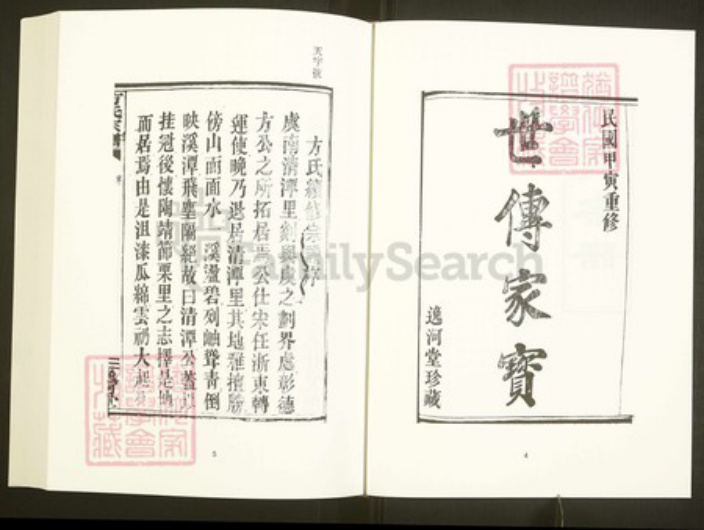 民國甲寅重修
世傳家寶
逸河堂珍藏
4
天字號
方氏續修宗譜序
虞南清潭里剡與虞之劃界處彰德
方公之所拓居焉公仕宋任浙東轉
運使晚乃退居清潭里其地雅擅勝
傍山而面水溪盪碧列岫聳青倒
映溪潭飛塵隔絕故曰清潭公蓋
挂冠後懷陶靖節栗里之志擇是地
而居焉由是沮漆瓜綿雲礽大起
5
FamilySearch